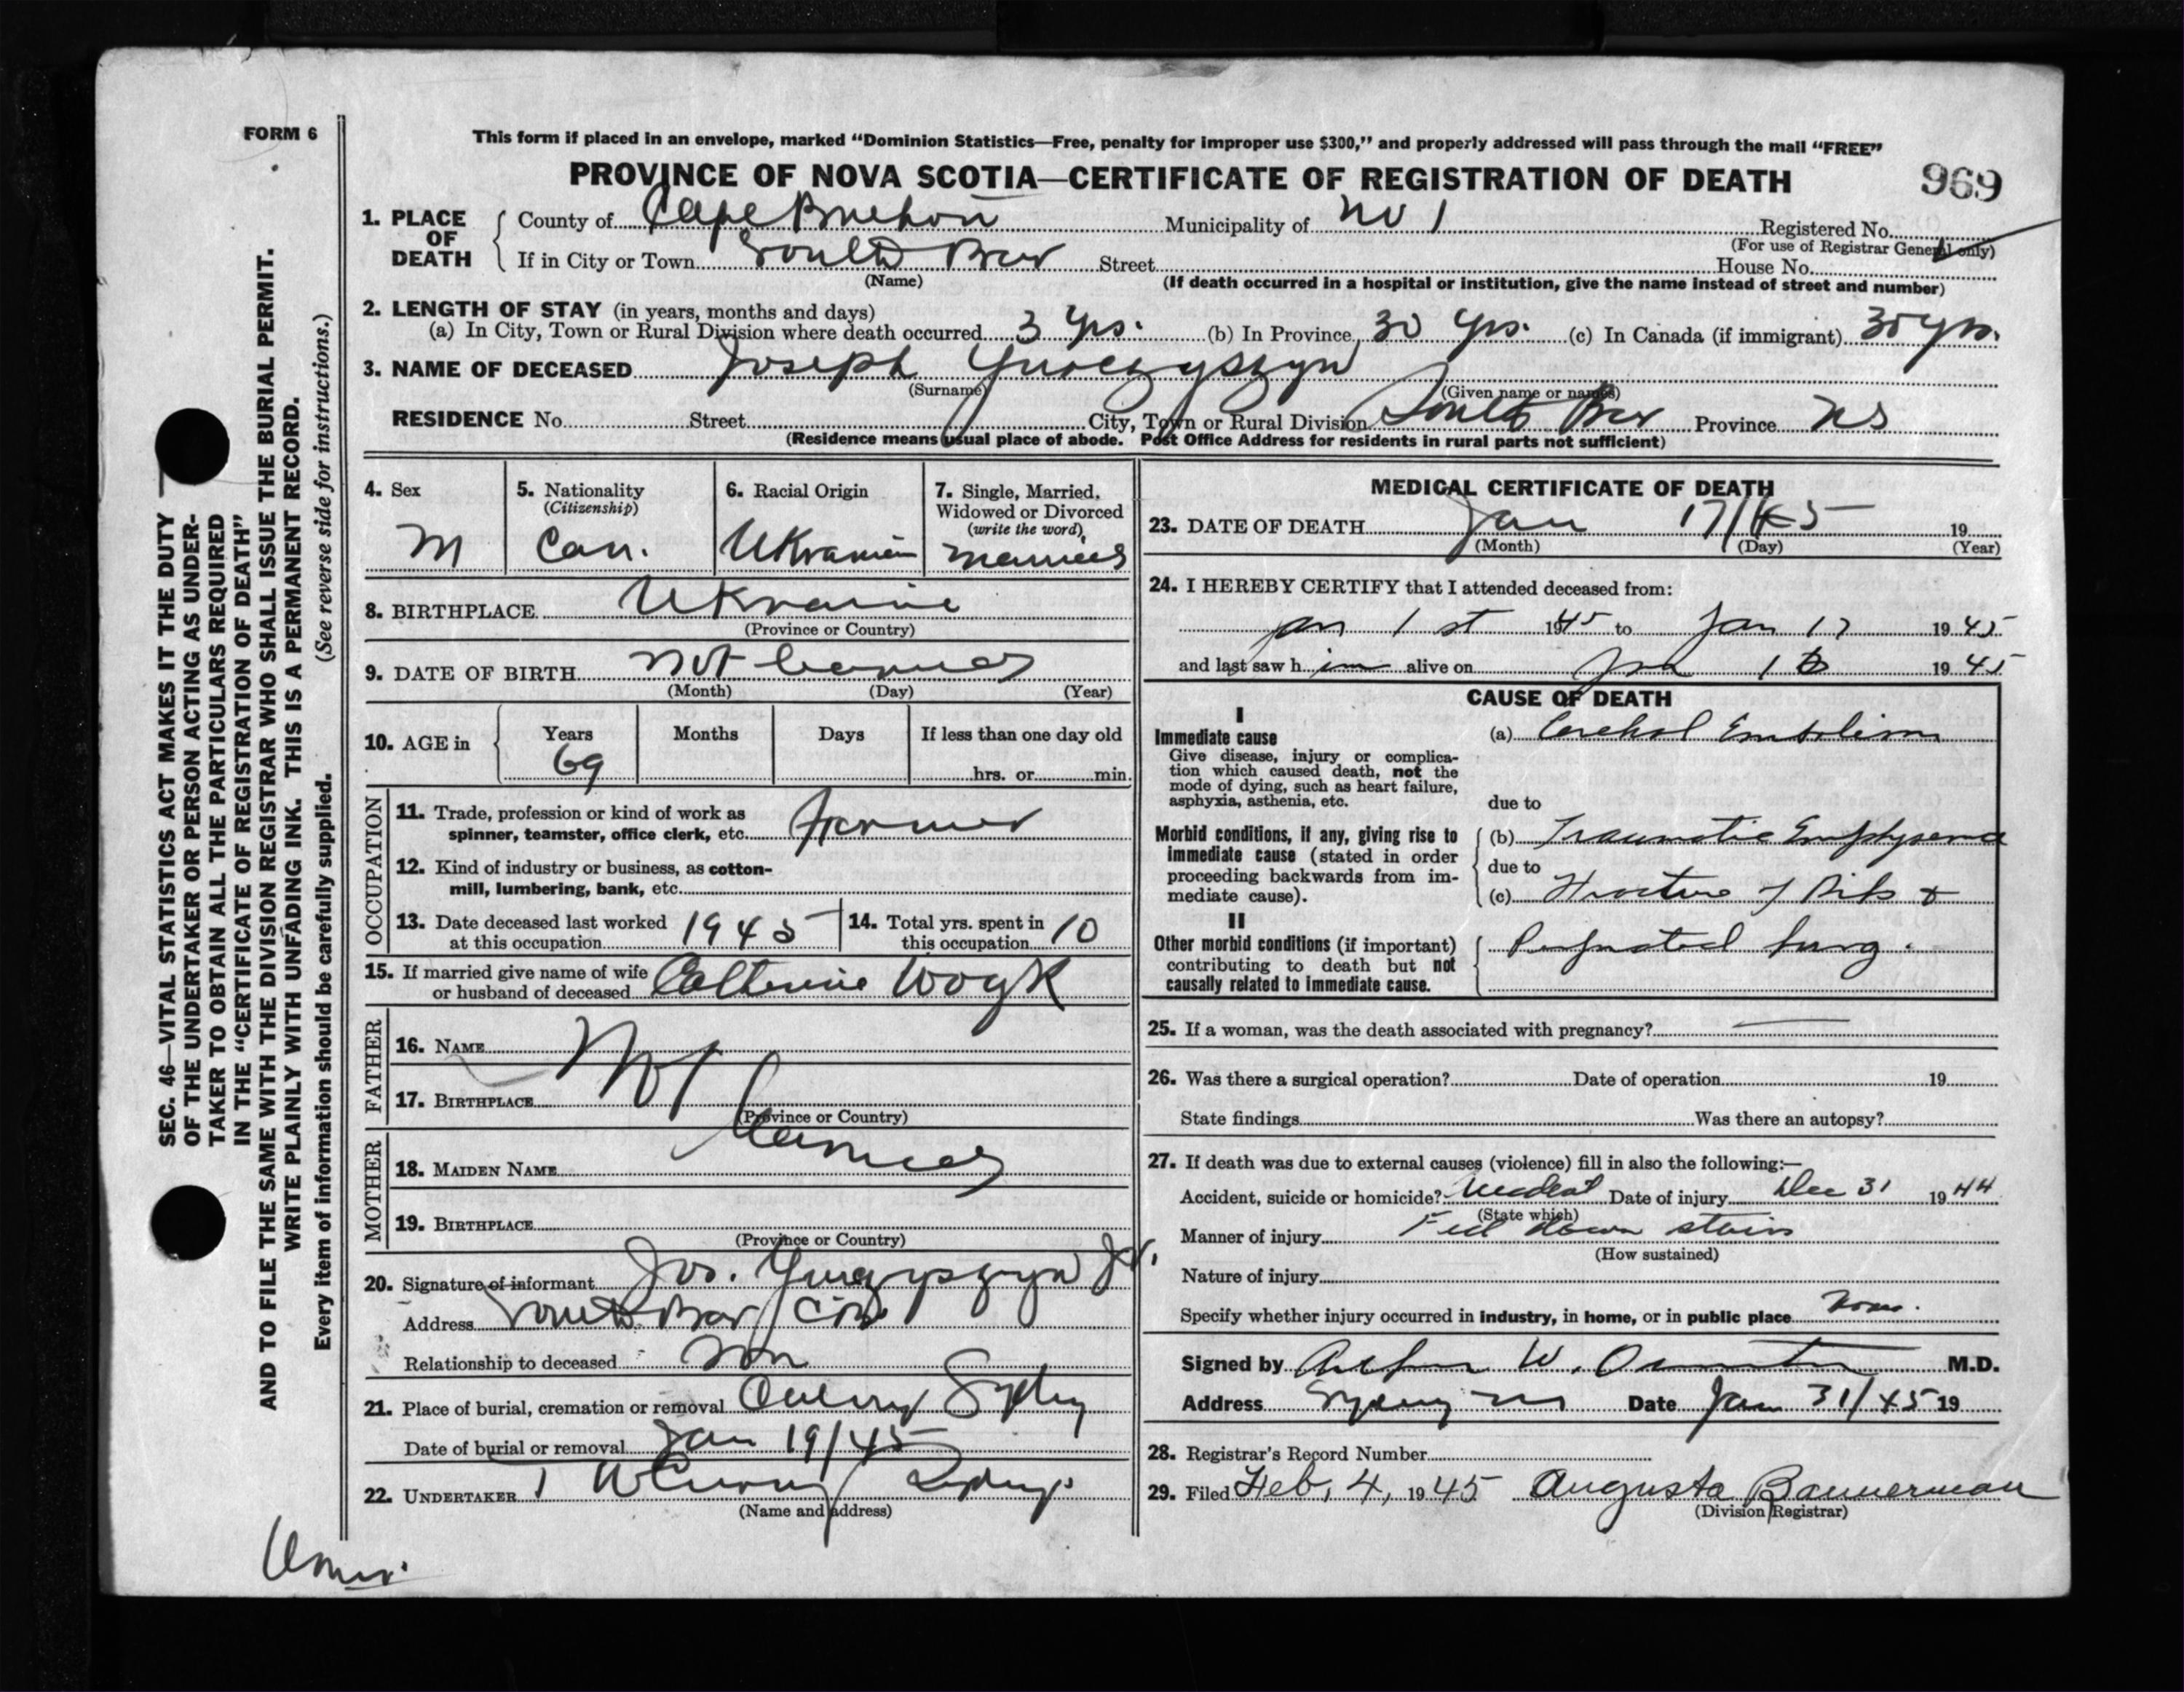 FORM 6
This form if placed in an envelope, marked “Dominion Statistics—Free, penalty for improper use $300,” and properly addressed will pass through the mail “FREE”
PROVINCE OF NOVA SCOTIA—CERTIFICATE OF REGISTRATION OF DEATH
969
1. PLACE OF DEATH County of Cape Breton Municipality of No 1 Registered No.
(For use of Registrar General only)
If in City or Town South Bar Street House No.
(Name) (If death occurred in a hospital or institution, give the name instead of street and number)
2. LENGTH OF STAY (in years, months and days)
(a) In City, Town or Rural Division where death occurred 3 yrs. (b) In Province 30 yrs. (c) In Canada (if immigrant) 35 yrs.
3. NAME OF DECEASED Joseph Yurczyszyn
(Surname) (Given name or names)
RESIDENCE No. Street City, Town or Rural Division South Bar Province NS
(Residence means usual place of abode. Post Office Address for residents in rural parts not sufficient)
4. Sex M
5. Nationality (Citizenship) Can.
6. Racial Origin Ukranian
7. Single, Married, Widowed or Divorced (write the word) Married
8. BIRTHPLACE Ukraine
(Province or Country)
9. DATE OF BIRTH Not
(Month) (Day) (Year)
10. AGE in Years 69 Months Days If less than one day old
hrs. or min.
OCCUPATION
11. Trade, profession or kind of work as
spinner, teamster, office clerk, etc. Farmer
12. Kind of industry or business, as cotton-
mill, lumbering, bank, etc.
13. Date deceased last worked at this occupation 1945
14. Total yrs. spent in this occupation 10
15. If married give name of wife
or husband of deceased Catherine Woyk
FATHER
16. NAME Not
17. BIRTHPLACE
(Province or Country)
MOTHER
18. MAIDEN NAME
19. BIRTHPLACE
(Province or Country)
20. Signature of informant Jos. Yurczyszyn Jr.
Address South Bar CB
Relationship to deceased Son
21. Place of burial, cremation or removal Sydney
Date of burial or removal Jan 19/45
22. UNDERTAKER T W Curry Sydney
(Name and address)
MEDICAL CERTIFICATE OF DEATH
23. DATE OF DEATH Jan 17/45 19
(Month) (Day) (Year)
24. I HEREBY CERTIFY that I attended deceased from:
Jan 1st 1945 to Jan 17 1945
and last saw him alive on Jan 16 1945
CAUSE OF DEATH
I
Immediate cause
Give disease, injury or complica-
tion which caused death, not the
mode of dying, such as heart failure,
asphyxia, asthenia, etc.
(a) Cerebral Embolism
due to
Morbid conditions, if any, giving rise to
immediate cause (stated in order
proceeding backwards from im-
mediate cause).
(b) Traumatic Emphysema
due to
(c) Fracture of Ribs &
II
Other morbid conditions (if important)
contributing to death but not
causally related to immediate cause.
Perforated lung.
25. If a woman, was the death associated with pregnancy? —
26. Was there a surgical operation? Date of operation 19
State findings Was there an autopsy?
27. If death was due to external causes (violence) fill in also the following:—
Accident, suicide or homicide? Accident Date of injury Dec 31 1944
(State which)
Manner of injury Fell down stairs
(How sustained)
Nature of injury
Specify whether injury occurred in industry, in home, or in public place Home.
Signed by Arthur W. M.D.
Address Sydney NS Date Jan 31/45 19
28. Registrar's Record Number
29. Filed Feb. 4, 1945 Augusta Bannerman
(Division Registrar)
SEC. 46—VITAL STATISTICS ACT MAKES IT THE DUTY
OF THE UNDERTAKER OR PERSON ACTING AS UNDER-
TAKER TO OBTAIN ALL THE PARTICULARS REQUIRED
IN THE “CERTIFICATE OF REGISTRATION OF DEATH”
AND TO FILE THE SAME WITH THE DIVISION REGISTRAR WHO SHALL ISSUE THE BURIAL PERMIT.
WRITE PLAINLY WITH UNFADING INK. THIS IS A PERMANENT RECORD.
Every item of information should be carefully supplied. (See reverse side for instructions.)